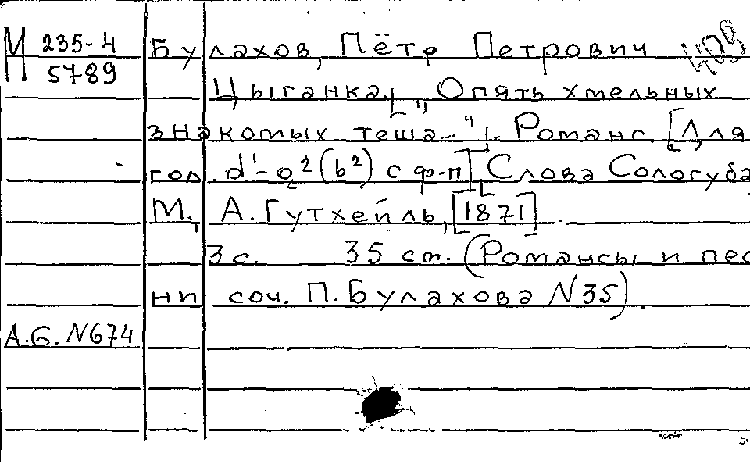 М 235-4 Булахов, Пётр Петрович
5789
Цыганка. [„Опять хмельных
знакомых теша..."]. Романс. [Для
гол. d¹-a²(b²) с ф-п] Слова Сологуба
М., А. Гутхейль, [1871].
3 с. 35 ст. (Романсы и пес
ни соч. П. Булахова N 35).
А.Б. N674